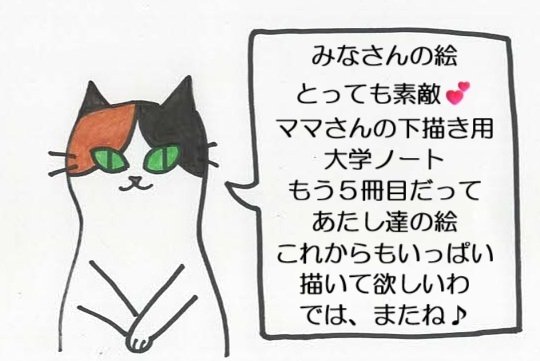 みなさんの絵
とっても素敵💕
ママさんの下描き用
大学ノート
もう５冊目だって
あたし達の絵
これからもいっぱい
描いて欲しいわ
では、またね♪